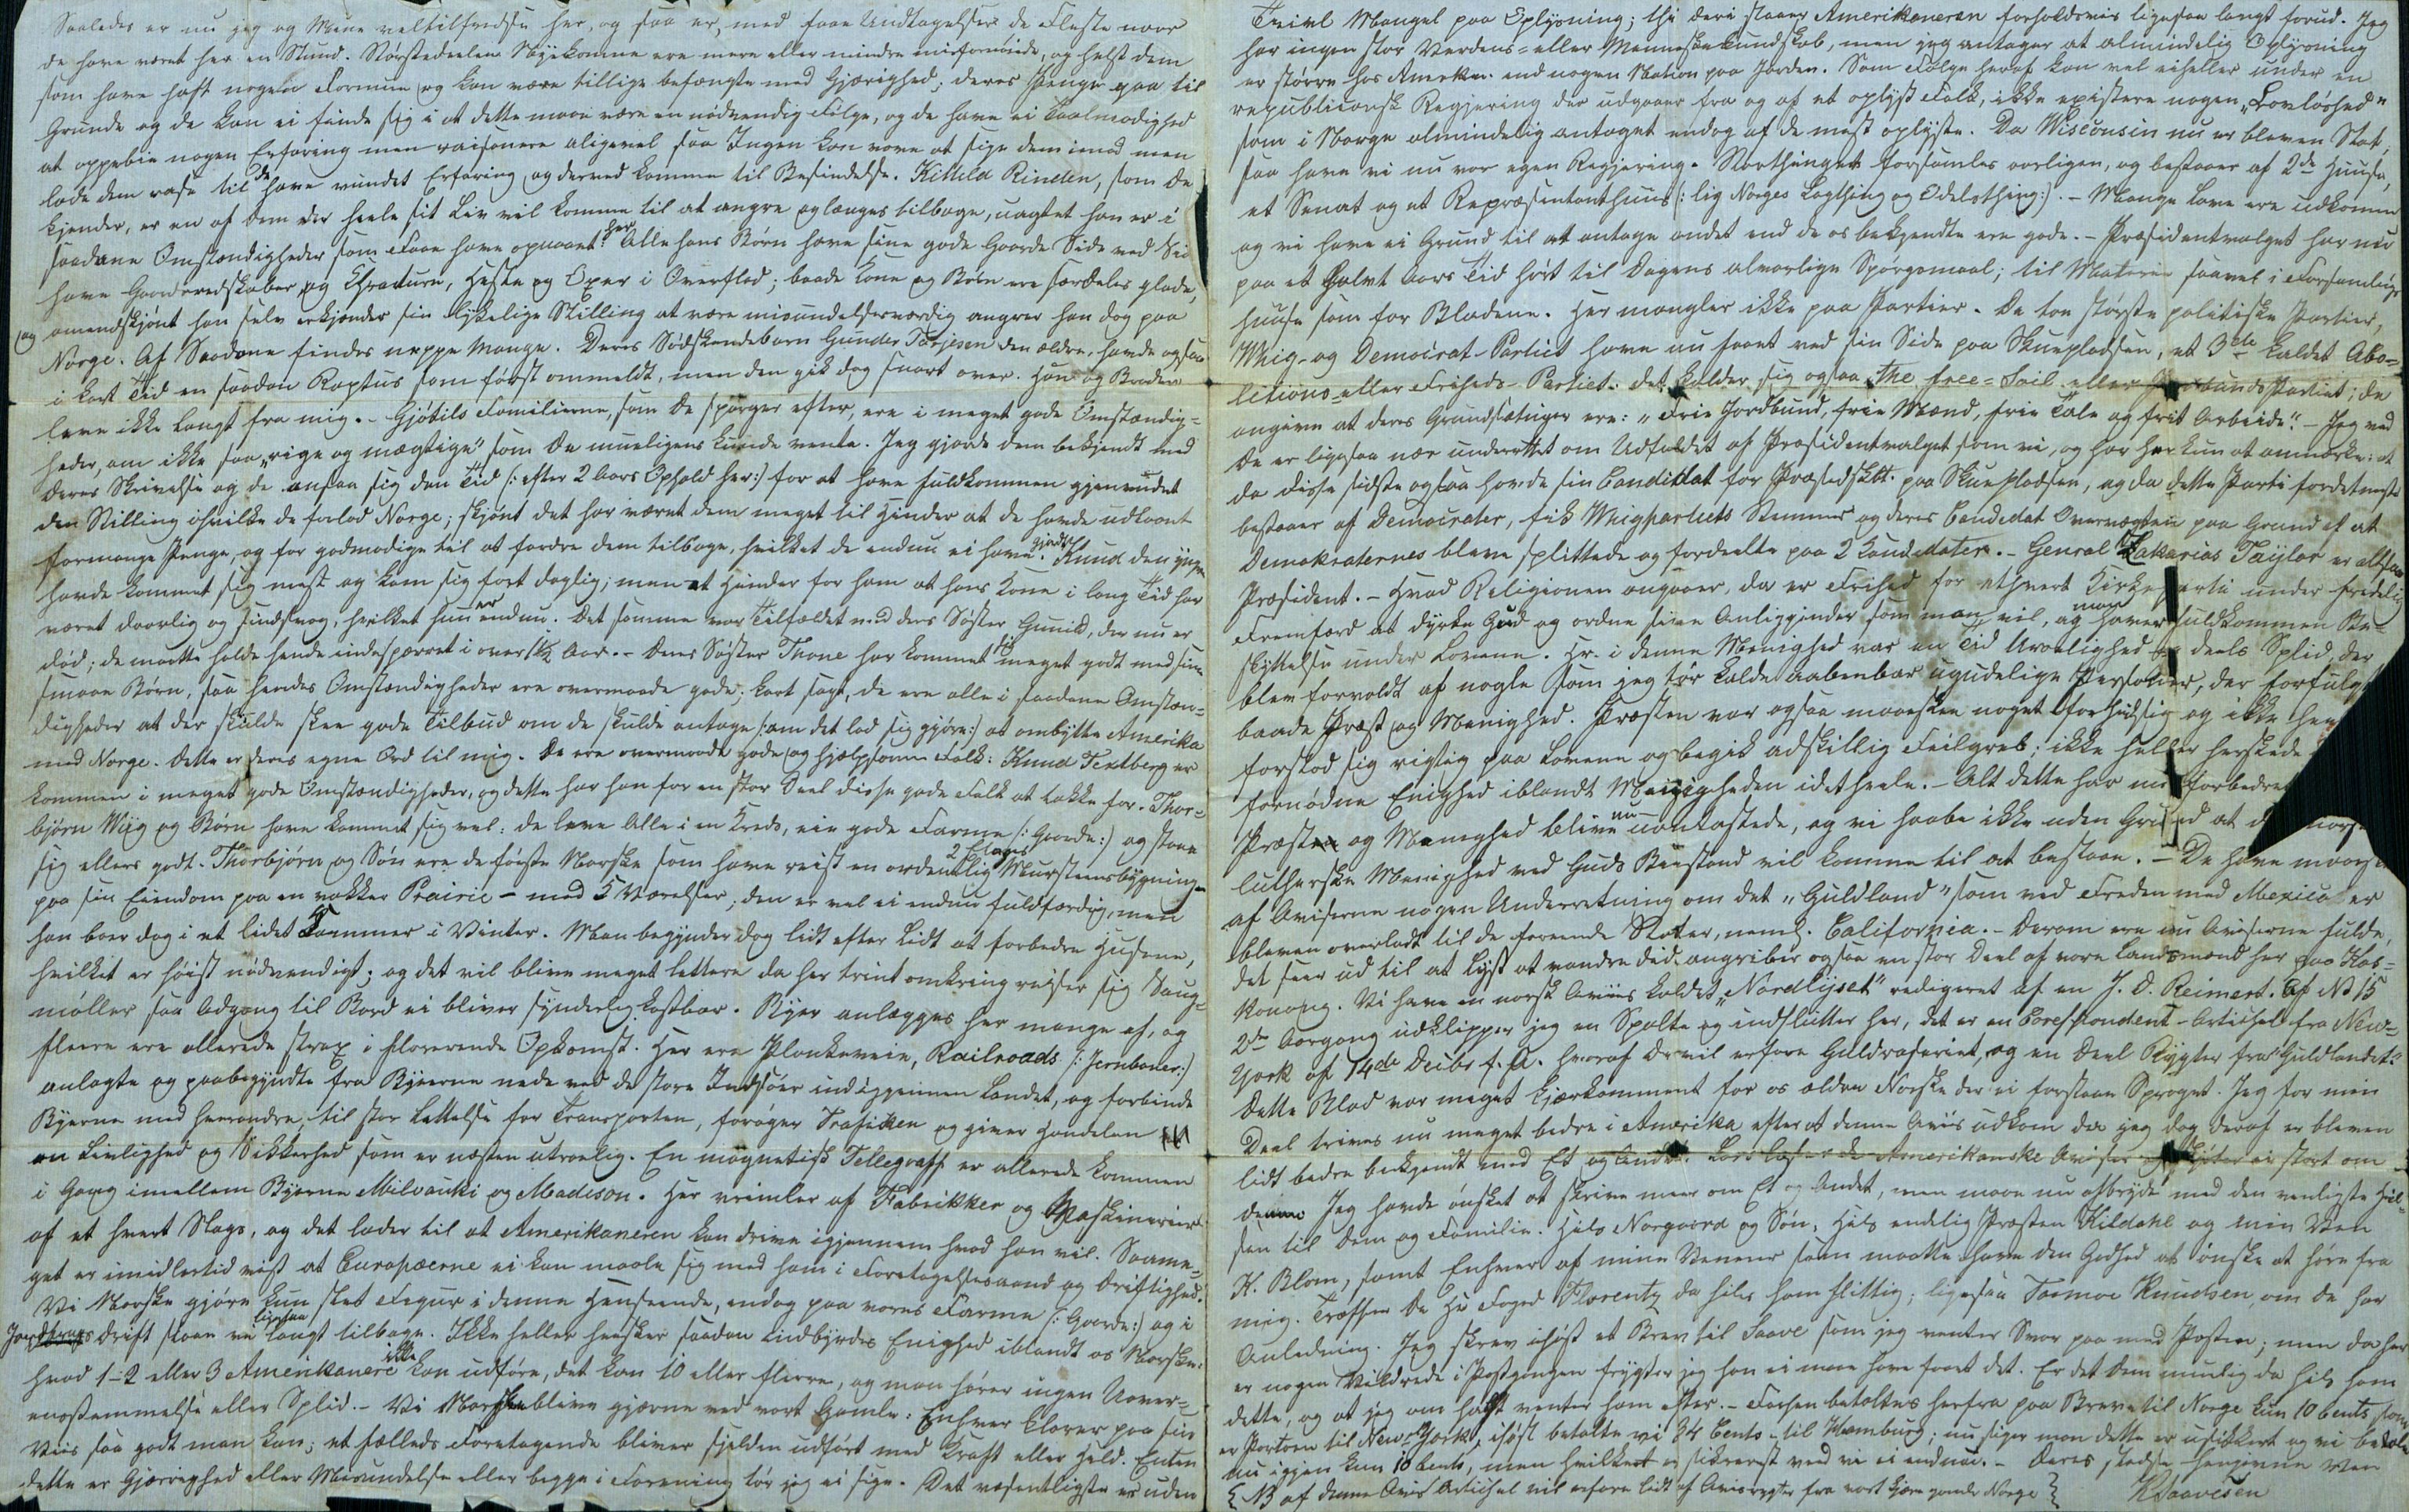 Saaledes er nu jeg og Mine veltilfredse her, og saa er, med faae Undtagelser de Fleste naar
de have været her en Stund. Størstedeelen Nyekomne ere mere eller mindre misfornøiede, og helst dem
som have haft nogen Formue og kan være tillige befængte med Gjærighed; deres Penge gaa til
Grunde og de kan ei finde sig i at dette maa være en nødvendig Følge, og de have ei Taalmodighed
at oppebie nogen Erfaring men raisonere aligevel saa Ingen kan vove at sige dem imod men
lade dem rase til de have vundet Erfaring og derved komme til Besindelse. Kittild Rinden, som De
kjender, er en af dem der heele sit Liv vil komme til at angre og længes tilbage, uagtet han er i
saadane Omstændigheder som Faae have opnaaet her. Alle hans Børn have sine gode Gaarde Side ved Sid
have Gaardsredskaber og Creature, Heste og Oxer i Overflod; baade Kone og Børn ere særdeles glade,
og omendskjønt han selv erkjender sin lykkelige Stilling at være misundelsesværdig angrer han dog paa
Norge. Af Saadane findes neppe mange. Deres Sødskendebarn Gunder Torjesen den ældre, havde ogsaa
i kort Tid en saadan Raptus som først ommeldt, men den gik dog snart over. Han og Broder
leve ikke langt fra mig. - Gjøtils Familierne, som De spørger efter, ere i meget gode Omstændig=
heder, om ikke saa "rige og mægtige" som De mueligens kunde vente. Jeg gjorde dem bekjendt med
Deres Skrivelse og de ansaa sig den Tid (: efter 2 Aars Ophold her :) for at have fuldkommen gjenvundet
den Stilling i hvilke de forlod Norge; skjønt det har været dem meget til Hinder at de havde udlaant
formange Penge, og for godmodige til at fordre dem tilbage, hvilket de endnu ei have gjort. Knud den yngre
havde kommet sig mest og kom sig fort daglig; men et Hinder for ham at hans Kone i lang Tid har
været daarlig og sindsvag, hvilket hun er endnu. Det samme var Tilfældet med ders Søster Gunild, der nu er
død; de maatte holde hende indespærret i over 1½ Aar. - Deres Søster Thone har kommet sig meget godt med sine
smaae Børn, saa hendes Omstændigheder ere overmaade gode; kort sagt, de ere alle i saadane Omstæn=
digheder at der skulde skee gode Tilbud om de skulde antage (: om det lod sig gjøre :) at ombytte Amerika
med Norge. Dette er deres egne Ord til mig. De ere overmaade gode og hjælpsomme Folk: Knud Textberg er
kommen i meget gode Omstændigheder, og dette har han for en stor Deel disse gode Folk at takke for. Thor=
bjørn Wiig og Børn have kommet sig vel: de leve Alle i en Kreds, eie gode Farme (: Gaarde :) og staae
sig ellers godt. Thorbjørn og Søn ere de første Norske som have reist en ordentlig 2 Etages Murstensbygning
paa sin Eiendom paa en vakker Prairie - med 5 Værelser; den er vel ei endnu fuldfærdig, men
han boer dog i et lidet Kammer i Vinter. Man begynder dog lidt efter lidt at forbedre Husene,
hvilket er høist nødvendigt; og det vil blive meget lettere da her trint omkring reiser sig Saug=
møller saa Adgang til Bord ei bliver synderlig kostbar. Byer anlægges her mange af, og
fleere ere allerede strax i florerende Opkomst. Her ere Plankeveie, Railroads (: Jernbaner :)
anlagte og paabegyndte fra Byerne nede ved de store Indsøer ind igjennem Landet, og forbinde
Byerne med hverandre, til stor Lettelse for Transporten, forøger Trafikken og giver Handelen
en Livlighed og Sikkerhed som er næsten utroelig. En magnetisk Tellegraff er allerede kommen
i Gang imellem Byerne Milvauki og Madison. Her vrimler af Fabrikker og Maskinerier
af et hvert Slags, og det lader til at Amerikaneren kan drive igjennem hvad han vil. Saame=
get er imidlertid vist at Europæerne ei kan maale sig med ham i Foretagelsesaand og Driftighed.
Vi Norske gjøre kun slet Figur i denne Henseende, endog paa vores Farme (: Gaarde :) og i
Jordbrugs Drift staae vi ligesaa langt tilbage. Ikke heller hersker saadan indbyrdes Enighed iblandt os Norske:
hvad 1-2 eller 3 Amerikanere ikke kan udføre, det kan 10 eller fleere, og man hører ingen Uover=
ensstemmelse eller Splid. - Vi Norske blive gjerne ved vort Gamle: Enhver klarer paa sin
Viis saa godt man kan; et fælleds Foretagende bliver sjelden udført med Kraft eller Held. Enten
dette er Gjærrighed eller Misundelse eller begge i Forening tør jeg ei sige. Det væsentligste er uden
Tvivl Mangel paa Oplysning; thi deri staaer Amerikaneren forholdsvis ligesaa langt forud. Jeg
har ingen stor Verdens= eller Menneskekundskab, men jeg antager at almindelig Oplysning
er større hos Amerkn. end nogen Nation paa Jorden. Som Følge heraf kan vel eiheller under en
republicansk Regjering der udgaaer fra og af et oplyst Folk, ikke existere nogen "Lovløshed"
som i Norge almindelig antaget endog af de mest oplyste. Da Wisconsin nu er bleven Stat,
saa have vi nu vor egen Regjering. Storthinget forsamles aarligen, og bestaaer af 2de Huuse,
et Senat og et Repræsentanthuus (: lig Norges Lagthing og Odelsthing :). - Mange Love ere udkomne
og vi have ei Grund til at antage andet end de os bekjendte ere gode. - Præsidentvalget har nu
paa et halvt Aars Tid hørt til Dagens alvorlige Spørgsmaal; til Materie saavel i Forsamlings
huuse som for Bladene. Her mangler ikke paa Partier. De too største politiske Partier,
Whig- og Democrat-Partiet have nu faaet ved sin Side paa Skuepladsen, et 3die kaldet Abo=
litions= eller Friheds-Partiet. Det kalder sig ogsaa the free=Soil eller Partiet; de
angive at deres Grundsætninger ere: "Frie Jordbund, frie Mænd, frie Tale og frit Arbeide". - Jeg ved
De er ligesaa nær underettet om Udfaldet af Præsidentvalget som vi, og har her kun at anmærke: at
da disse sidste ogsaa havde sin Candidat for Præsidsktt. paa Skuepladsen, og da dette Parti fordetmeste
bestaaer af Democrater, fik Whigpartiets Stemmer og deres Candidat Overvægten paa Grund af at
Demokraternes bleve splittede og fordeelte paa 2 Kandidater. - Genral Zakarias Taylor er altsaa
Præsident. - Hvad Religionen angaaer, da er Frihed for ethvert Kirkeparti under fredelig
Fremfærd at dyrke Gud og ordne sine Anliggender som man vil, og man haver fuldkommen Be=
skyttelse under Lovene. Her i denne Menighed var en Tid Uroelighed og deels Splid, der
blev forvoldt af nogle som jeg tør kalde aabenbar ugudelige Personer, der forfulgt
baade Præst og Menighed. Præsten var ogsaa maaskee noget forhidsig og ikke
forstod sig rigtig paa Lovene og begik adskillig Feilgreb; ikke heller herskede
fornødne Enighed iblandt Menigheden idetheele. - Alt dette har nu forbedret
Præsten og Menighed blive nu uantastede, og vi haabe ikke uden Grund at norsk
lutherske Menighed ved Guds Bistand vil komme til at bestaae. - De have maaskee
af Aviserne nogen Underretning om det "Guldland" som ved Freden med Mexico er
bleven overladt til de forenede Stater, neml. California. - Derom ere nu Aviserne fulde,
det seer ud til at Lyst at vandre did angriber ogsaa en stor Deel af vore Landsmænd her paa Kos=
konong. Vi have en norsk Aviis kaldet "Nordlyset" redigeret af en J. D. Reimert. Af No 15
2den Aargang udklipper jeg en Spalte og indslutter her, det er en Corespondent-Artichel fra New=
York af 14de Decbr f. A. hvoraf De vil erfare Guldraseriet, og en Deel Rygter fra "Guldlandet".
Dette Blad var meget kjærkomment for os ældre Norske der ei forstaae Sproget. Jeg for min
Deel trives nu meget bedre i Amerika efter at denne Aviis udkom da jeg dog deraf er bleven
lidt bedre bekjendt med Et og Andet. Amerikanske Aviser
 Jeg havde ønsket at skrive mere om Et og Andet, men maae nu afbryde med den venligste Hil=
sen til Dem og Familie. Hils Norgaard og Søn, Hils endelig Præsten Kildahl og min Ven
H. Blom, samt Enhver af mine Venner som maatte have den Godhed at ønske at høre fra
mig. Træffer De Hr Foged Florentz da hils ham flittig; ligesaa Tarmoe Knudsen, om De har
Anledning. Jeg skrev ihøst et Brev til Saave som jeg venter Svar paa med Posten; men da her
er nogen Vildrede i Postgangen frygter jeg han ei mon have faaet det. Er det Dem muelig da hils ham
dette, og at jeg om halst venter ham efter. - Forhen betaltes herfra paa Breve til Norge kun 10 cents, som
er Portoen til New-York; ihøst betalte vi 34 Cents - til Hamburg; nu siger man dette er usikkert og vi betale
nu igjen kun 10 Cents, men hvilket er sikrerest ved vi ei endnu. - Deres stedse hengivne Ven
{ NB af denne Avis Artichel vil erfare lidt af Avisrygter fra vort kjære gamle Norge } K Saavesen